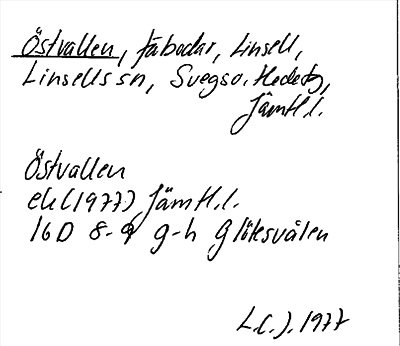 Östvallen, fäbodar, Linsell,
Linsells sn, Svegs o. Hede tg,
Jämtl.l.
Östvallen
ek (1977) Jämtl.l.
16D 8-9 g-h Glöksvålen
L.C.J. 1977